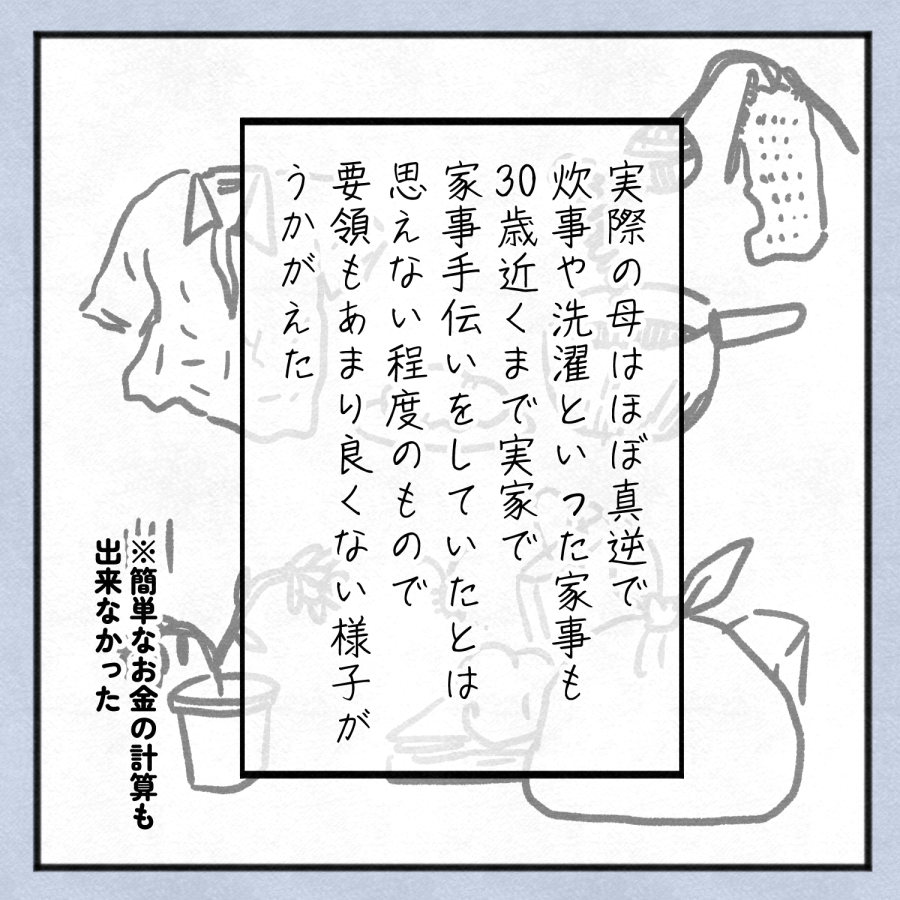 実際の母はほぼ真逆で
炊事や洗濯といった家事も
30歳近くまで実家で
家事手伝いをしていたとは
思えない程度のもので
要領もあまり良くない様子が
うかがえた
※簡単なお金の計算も
出来なかった